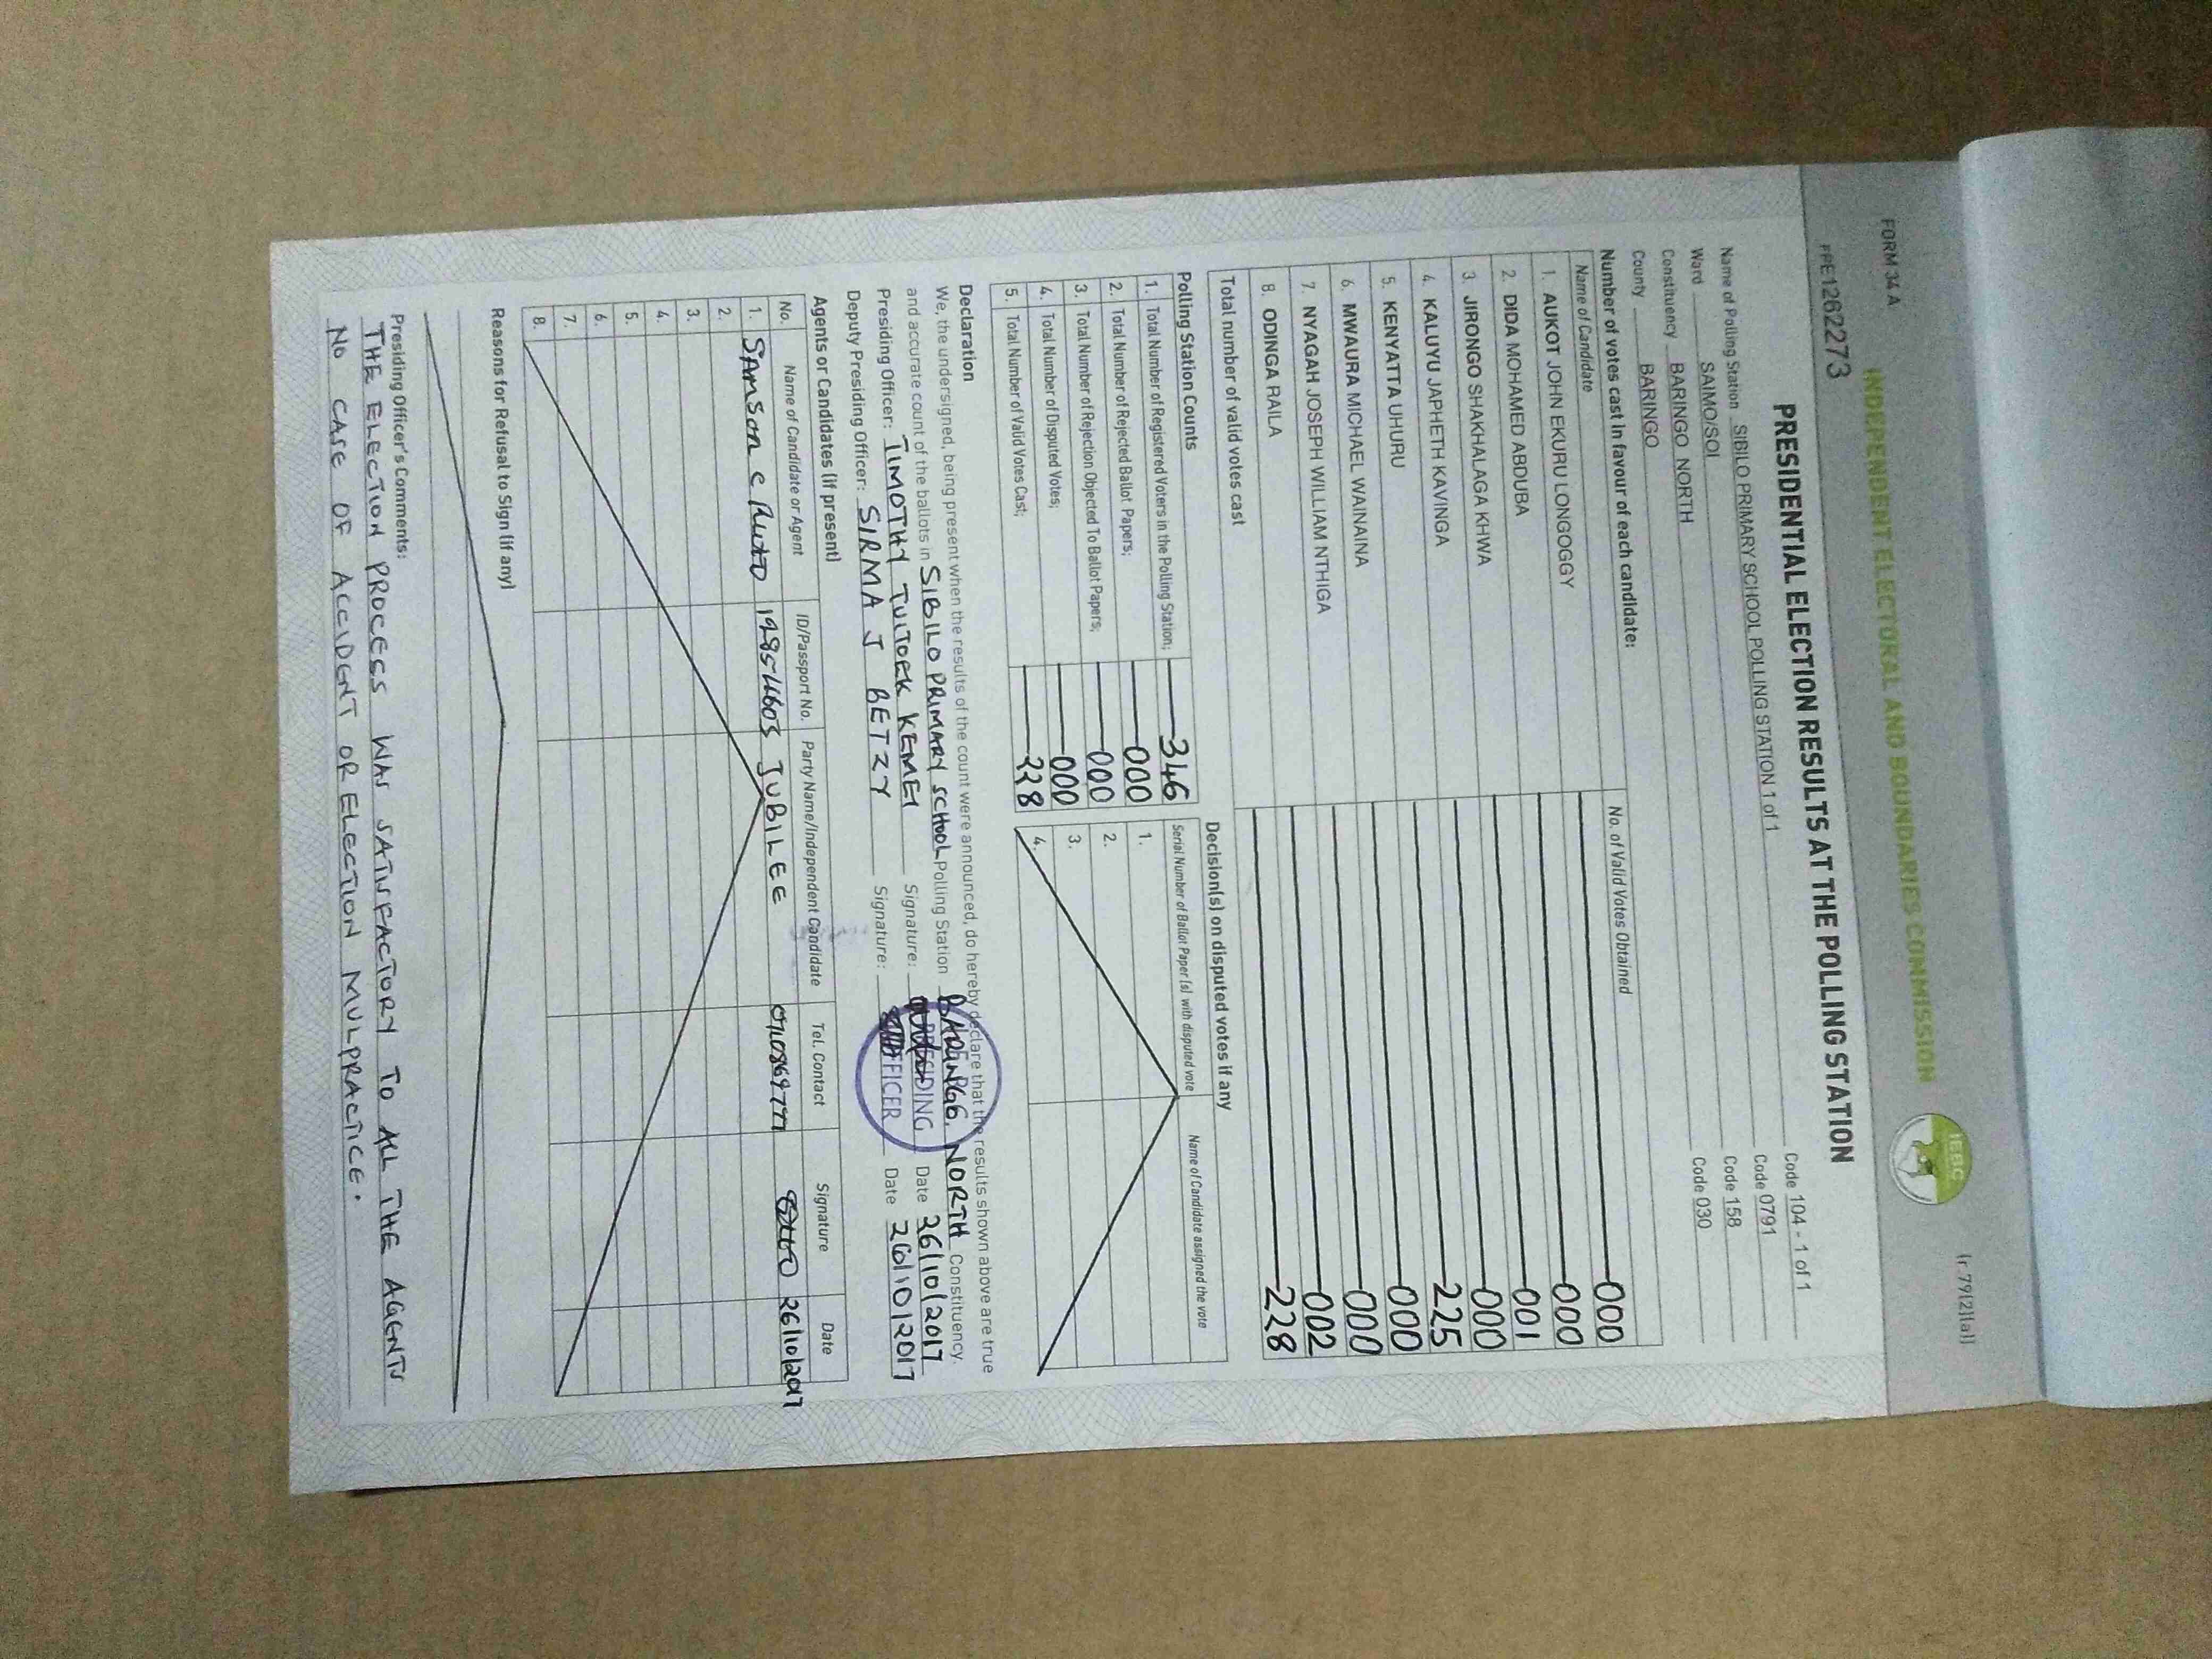 FORM 34 A
(r 79(2)(a))
INDEPENDENT ELECTORAL AND BOUNDARIES COMMISSION
IEBC
PPE126273
PRESIDENTIAL ELECTION RESULTS AT THE POLLING STATION
Name of Polling Station SIBILO PRIMARY SCHOOL POLLING STATION 1 of 1 Code 104 - 1 of 1
Ward SAIMO/SOI Code 0791
Constituency BARINGO NORTH Code 158
County BARINGO Code 030
Number of votes cast in favour of each candidate:
Name of Candidate No. of Valid Votes Obtained
1. AUKOT JOHN EKURU LONGOGGY 000
2. DIDA MOHAMED ABDUBA 000
3. JIRONGO SHAKHALAGA KHWA 001
4. KALUYU JAPHETH KAVINGA 000
5. KENYATTA UHURU 225
6. MWAURA MICHAEL WAINAINA 000
7. NYAGAH JOSEPH WILLIAM NTHIGA 000
8. ODINGA RAILA 002
Total number of valid votes cast 228
Polling Station Counts
1. Total Number of Registered Voters in the Polling Station; 346
2. Total Number of Rejected Ballot Papers; 000
3. Total Number of Rejection Objected To Ballot Papers; 000
4. Total Number of Disputed Votes; 000
5. Total Number of Valid Votes Cast; 228
Decision(s) on disputed votes if any
Serial Number of Ballot Paper (s) with disputed vote Name of Candidate assigned the vote
1.
2.
3.
4.
Declaration
We, the undersigned, being present when the results of the count were announced, do hereby declare that the results shown above are true
and accurate count of the ballots in SIBILO PRIMARY SCHOOL Polling Station BARINGO NORTH Constituency.
Presiding Officer: TIMOTHY TUITOEK KEMEI Signature: Date 26/10/2017
Deputy Presiding Officer: SIRMA J BETZY Signature: Date 26/10/2017
PRESIDING
OFFICER
Agents or Candidates (if present)
No. Name of Candidate or Agent ID/Passport No. Party Name/Independent Candidate Tel. Contact Signature Date
1. SAMSON C RUTO 19854603 JUBILEE 0708697771 26/10/2017
2.
3.
4.
5.
6.
7.
8.
Reasons for Refusal to Sign (if any)
Presiding Officer's Comments:
THE ELECTION PROCESS WAS SATISFACTORY TO ALL THE AGENTS
NO CASE OF ACCIDENT OR ELECTION MULPRACTICE.